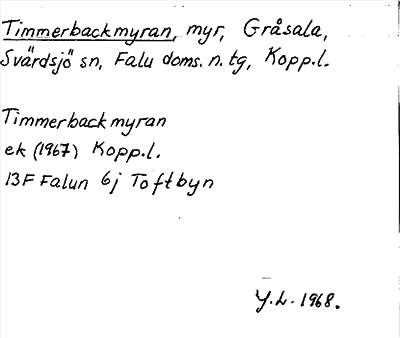 Timmerbackmyran, myr, Gråsala,
Svärdsjö sn, Falu doms. n. tg, Kopp.l.
Timmerbackmyran
ek (1967) Kopp.l.
13F Falun 6j Toftbyn
Y.L. 1968.